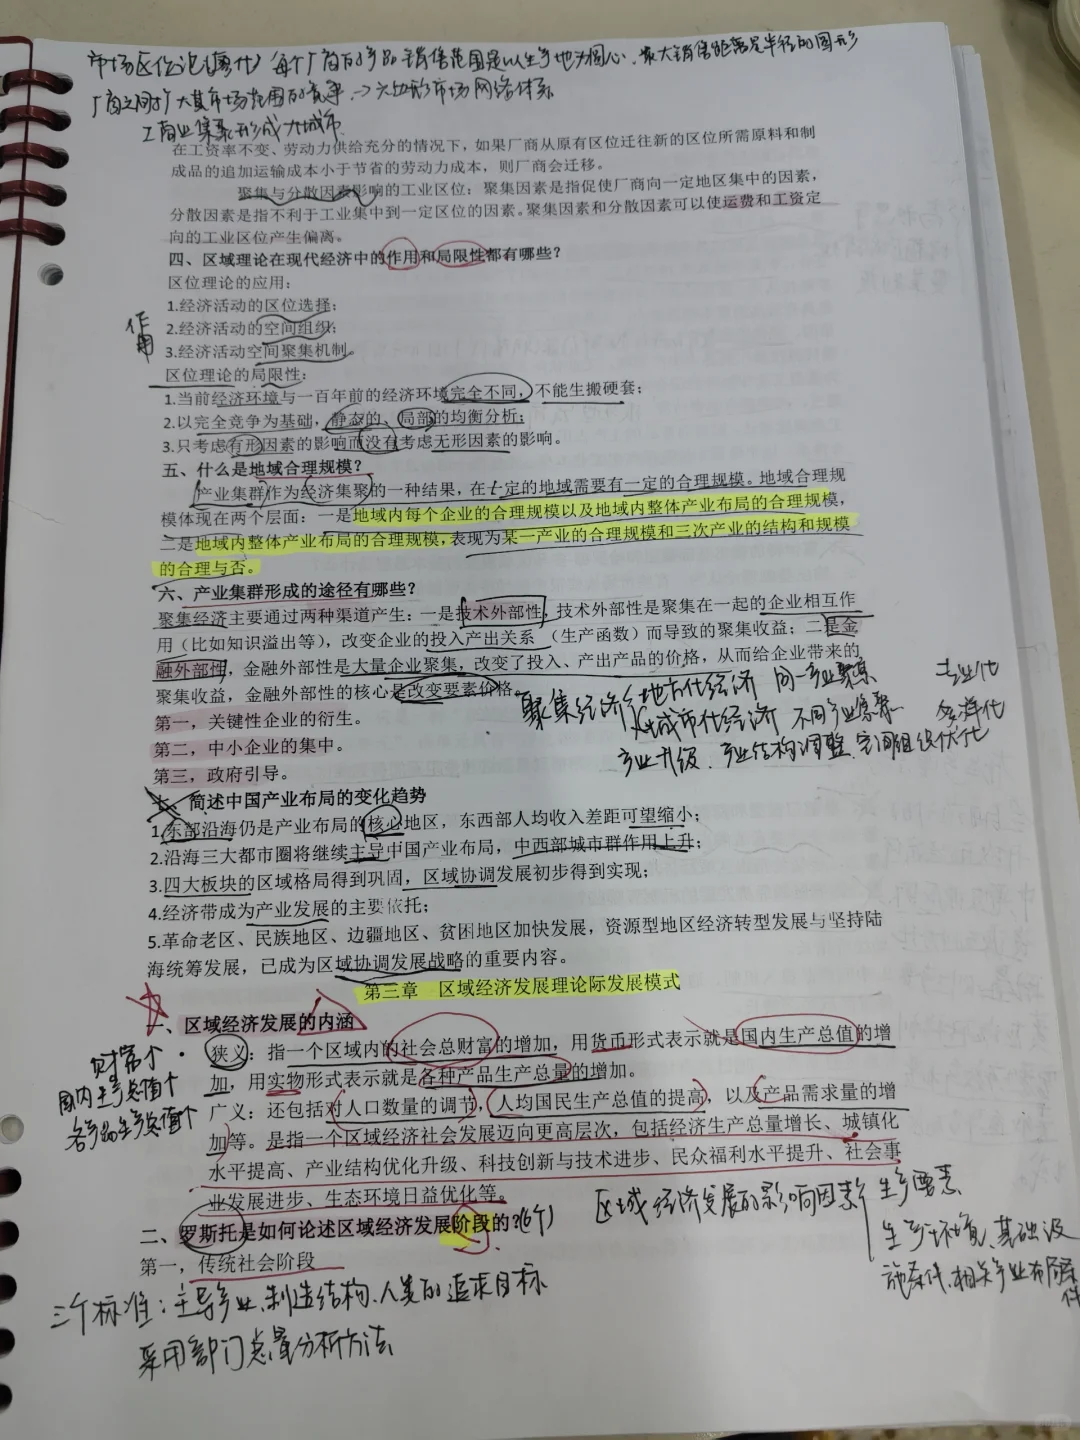 市场区位论(廖什) 每个厂商的产品销售范围是以生产地为圆心、最大销售距离是半径的圆形
厂商之间扩大其市场范围的竞争 → 六边形市场网络体系
工商业集聚形成大城市
在工资率不变、劳动力供给充分的情况下，如果厂商从原有区位迁往新的区位所需原料和制
成品的追加运输成本小于节省的劳动力成本，则厂商会迁移。
聚集与分散因素影响的工业区位：聚集因素是指促使厂商向一定地区集中的因素，
分散因素是指不利于工业集中到一定区位的因素。聚集因素和分散因素可以使运费和工资定
向的工业区位产生偏离。
四、区域理论在现代经济中的作用和局限性都有哪些？
区位理论的应用：
1.经济活动的区位选择；
作用
2.经济活动的空间组织；
3.经济活动空间聚集机制。
区位理论的局限性：
1.当前经济环境与一百年前的经济环境完全不同，不能生搬硬套；
2.以完全竞争为基础，静态的、局部的均衡分析；
3.只考虑有形因素的影响而没有考虑无形因素的影响。
五、什么是地域合理规模？
产业集群作为经济集聚的一种结果，在一定的地域需要有一定的合理规模。地域合理规
模体现在两个层面：一是地域内每个企业的合理规模以及地域内整体产业布局的合理规模，
二是地域内整体产业布局的合理规模，表现为某一产业的合理规模和三次产业的结构和规模
的合理与否。
六、产业集群形成的途径有哪些？
聚集经济主要通过两种渠道产生：一是技术外部性，技术外部性是聚集在一起的企业相互作
用（比如知识溢出等），改变企业的投入产出关系（生产函数）而导致的聚集收益；二是金
融外部性，金融外部性是大量企业聚集，改变了投入、产出产品的价格，从而给企业带来的
聚集收益，金融外部性的核心是改变要素价格。
聚集经济 地方化经济 同一产业聚集 专业化
第一，关键性企业的衍生。
城市化经济 不同产业集聚 多样化
第二，中小企业的集中。
产业升级、产业结构调整、空间组织优化
第三，政府引导。
简述中国产业布局的变化趋势
1.东部沿海仍是产业布局的核心地区，东西部人均收入差距可望缩小；
2.沿海三大都市圈将继续主导中国产业布局，中西部城市群作用上升；
3.四大板块的区域格局得到巩固，区域协调发展初步得到实现；
4.经济带成为产业发展的主要依托；
5.革命老区、民族地区、边疆地区、贫困地区加快发展，资源型地区经济转型发展与坚持陆
海统筹发展，已成为区域协调发展战略的重要内容。
第三章 区域经济发展理论际发展模式
一、区域经济发展的内涵
财富个
狭义：指一个区域内的社会总财富的增加，用货币形式表示就是国内生产总值的增
国内生产总值个
加，用实物形式表示就是各种产品生产总量的增加。
各产品生产总值个
广义：还包括对人口数量的调节，人均国民生产总值的提高，以及产品需求量的增
加等。是指一个区域经济社会发展迈向更高层次，包括经济生产总量增长、城镇化
水平提高、产业结构优化升级、科技创新与技术进步、民众福利水平提升、社会事
业发展进步、生态环境日益优化等。
二、罗斯托是如何论述区域经济发展阶段的？(6个)
区域经济发展的影响因素 生产要素
生产环境、基础设
施条件、相关产业布局条件
第一，传统社会阶段
三个标准：主导产业、制造结构、人类的追求目标
采用部门总量分析方法